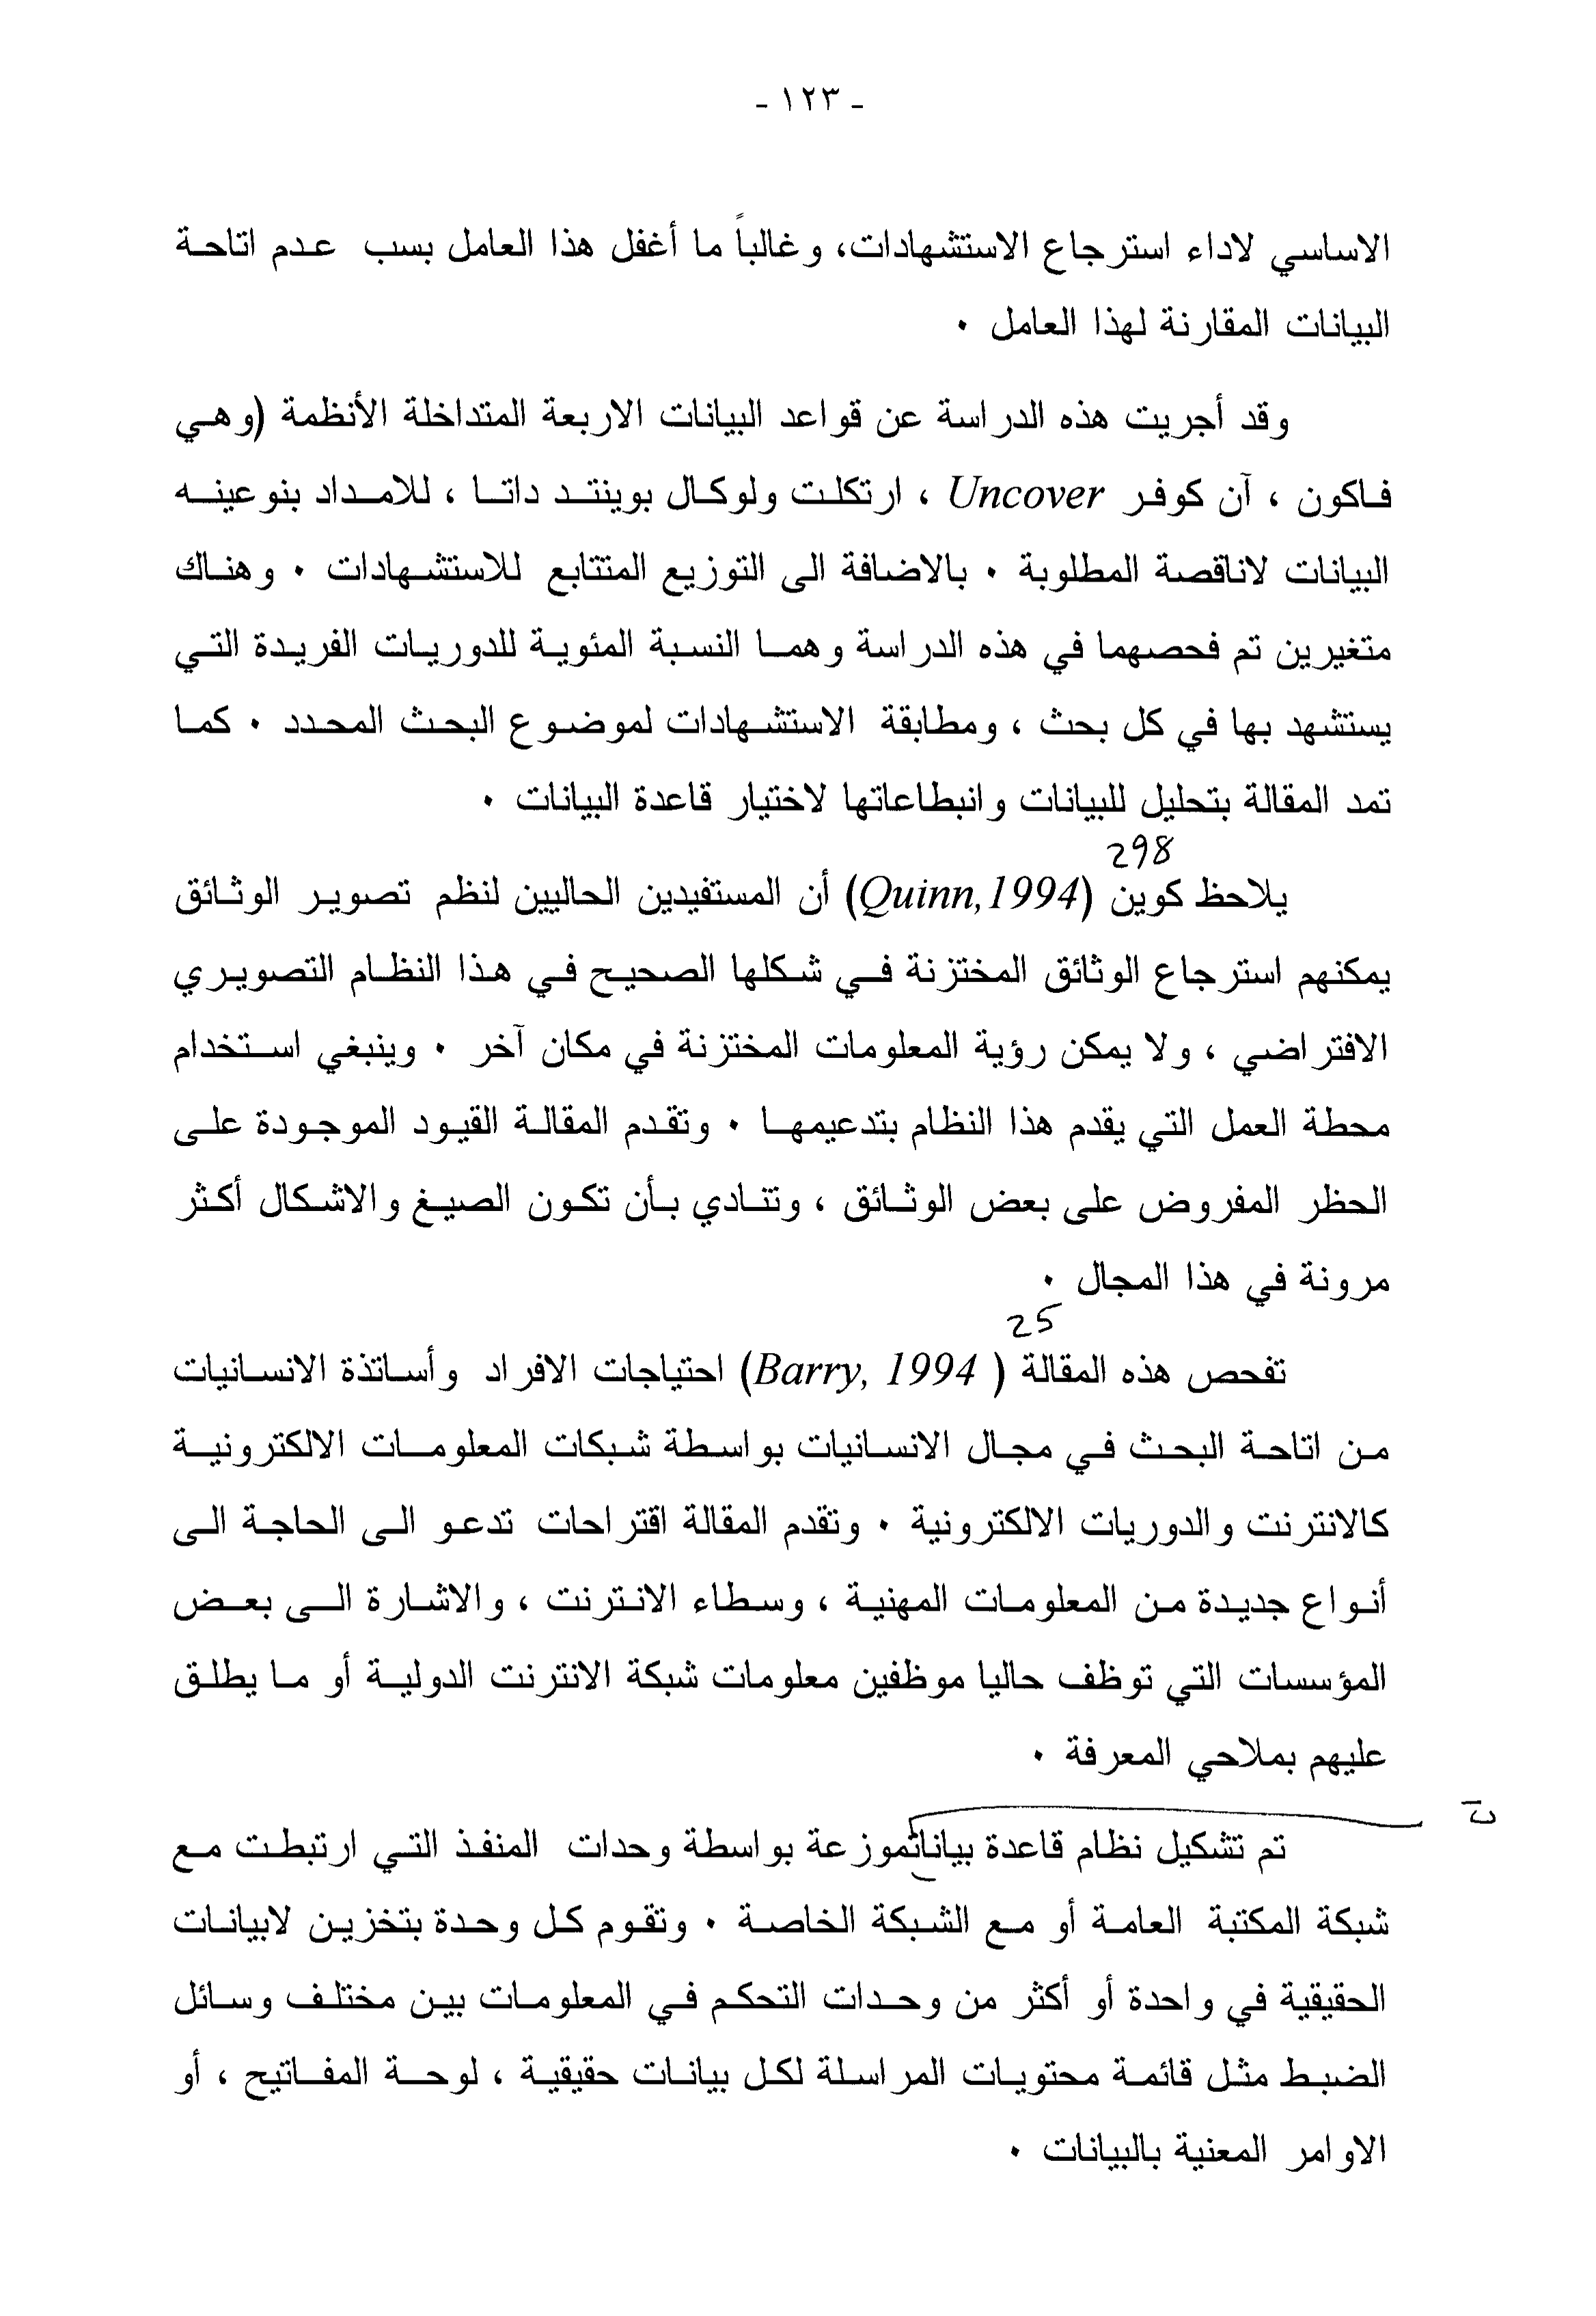 - ١٢٣ -
الاساسي لاداء استرجاع الاستشهادات، وغالباً ما أغفل هذا العامل بسب عدم اتاحة
البيانات المقارنة لهذا العامل ٠
وقد أجريت هذه الدراسة عن قواعد البيانات الاربعة المتداخلة الأنظمة (وهي
فاكون ، آن كوفر Uncover ، ارتكلت ولوكال بوينتد داتا ، للامداد بنوعينه
البيانات لاناقصة المطلوبة ٠ بالاضافة الى التوزيع المتتابع للاستشهادات ٠ وهناك
متغيرين تم فحصهما في هذه الدراسة وهما النسبة المئوية للدوريات الفريدة التي
يستشهد بها في كل بحث ، ومطابقة الاستشهادات لموضوع البحث المحدد ٠ كما
تمد المقالة بتحليل للبيانات وانبطاعاتها لاختيار قاعدة البيانات ٠
298
يلاحظ كوين (Quinn,1994) أن المستفيدين الحاليين لنظم تصوير الوثائق
يمكنهم استرجاع الوثائق المختزنة في شكلها الصحيح في هذا النظام التصويري
الافتراضي ، ولا يمكن رؤية المعلومات المختزنة في مكان آخر ٠ وينبغي استخدام
محطة العمل التي يقدم هذا النظام بتدعيمها ٠ وتقدم المقالة القيود الموجودة على
الحظر المفروض على بعض الوثائق ، وتنادي بأن تكون الصيغ والاشكال أكثر
مرونة في هذا المجال ٠
25
تفحص هذه المقالة ( Barry, 1994) احتياجات الافراد وأساتذة الانسانيات
من اتاحة البحث في مجال الانسانيات بواسطة شبكات المعلومات الالكترونية
كالانترنت والدوريات الالكترونية ٠ وتقدم المقالة اقتراحات تدعو الى الحاجة الى
أنواع جديدة من المعلومات المهنية ، وسطاء الانترنت ، والاشارة الى بعض
المؤسسات التي توظف حاليا موظفين معلومات شبكة الانترنت الدولية أو ما يطلق
عليهم بملاحي المعرفة ٠
ت
تم تشكيل نظام قاعدة بياناتموزعة بواسطة وحدات المنفذ التي ارتبطت مع
شبكة المكتبة العامة أو مع الشبكة الخاصة ٠ وتقوم كل وحدة بتخزين لابيانات
الحقيقية في واحدة أو أكثر من وحدات التحكم في المعلومات بين مختلف وسائل
الضبط مثل قائمة محتويات المراسلة لكل بيانات حقيقية ، لوحة المفاتيح ، أو
الاوامر المعنية بالبيانات ٠